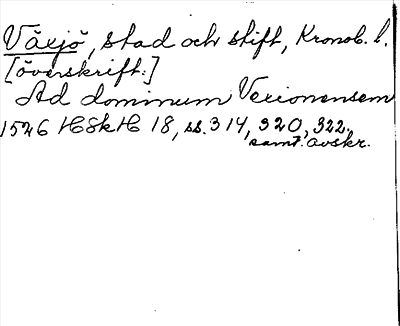 Växjö, stad och stift, Kronob. l.
[överskrift:]
Ad dominum Vexionensem
1526 HSkH 18, ss. 314, 320, 322.
samt. avskr.